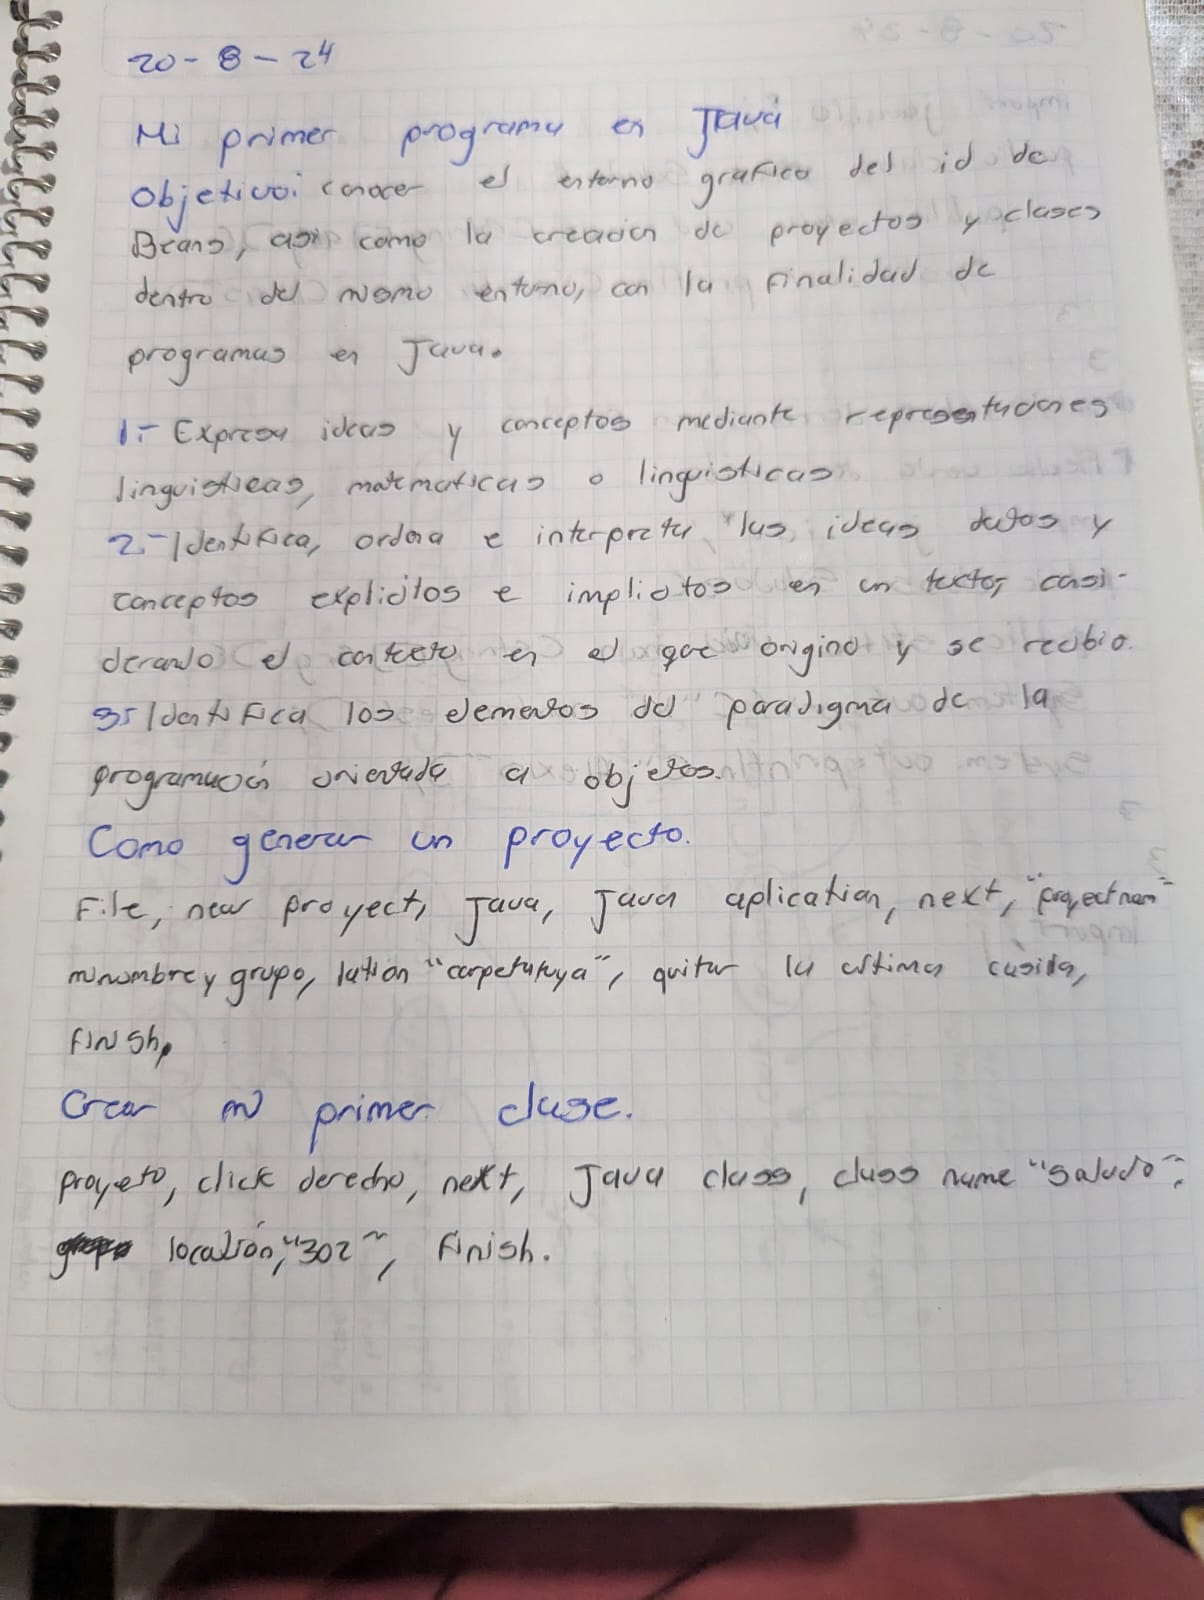 20 - 8 - 24
Mi primer programa en Java
Objetivo: conocer el entorno grafico del id de
Beans, asi como la creacion de proyectos y clases
dentro del mismo entorno, con la finalidad de
programas en Java.
1.- Expresa ideas y conceptos mediante representaciones
linguisticas, matematicas o linguisticas
2.- Identifica, ordena e interpreta las ideas datos y
conceptos explicitos e implicitos en un texto, casi-
derando el contexto en el que origino y se recibio.
3.- Identifica los elementos del paradigma de la
programación orientada a objetos.
Como generar un proyecto.
File, new proyect, Java, Java aplication, next, "proyect nam"
mi nombre y grupo, lation "carpetatuya", quitar la ultima casilla,
finish,
Crear mi primer clase.
proyeto, click derecho, next, Java class, class name "saludo",
location, "302", finish.